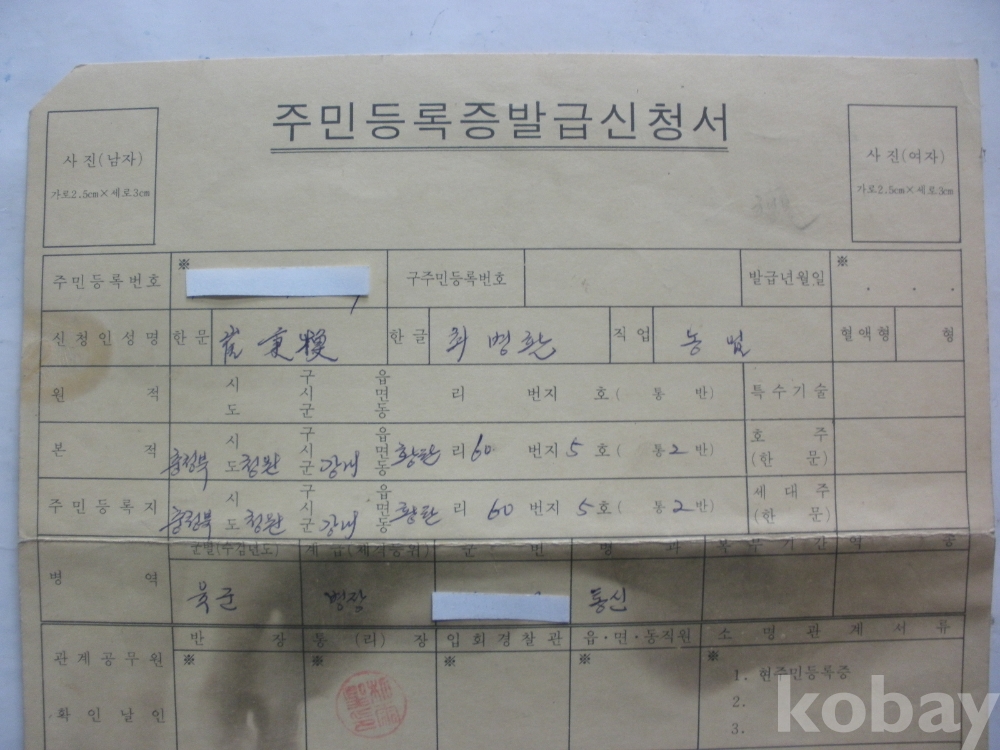 주민등록증발급신청서
사진(남자)
가로2.5cm×세로3cm
사진(여자)
가로2.5cm×세로3cm
주민등록번호 ※ 구주민등록번호 발급년월일 ※ . . .
신청인성명 한문 崔秉煥 한글 최병환 직업 농업 혈액형 형
원적 시도 구시군 읍면동 리 번지 호( 통 반) 특수기술
본적 충청북 시도 청원 구시군 강내 읍면동 황탄 리 60 번지 5 호( 통 2 반) 호주(한문)
주민등록지 충청북 시도 청원 구시군 강내 읍면동 황탄 리 60 번지 5 호( 통 2 반) 세대주(한문)
병역 군별(수검년도) 계급(체격등위) 군번 병과 복무기간 역종
육군 병장 통신
관계공무원 확인날인 반장 통(리)장 입회경찰관 읍·면·동직원 소명관계서류
※ ※ ※ ※ ※
1. 현주민등록증
2.
3.
kobay